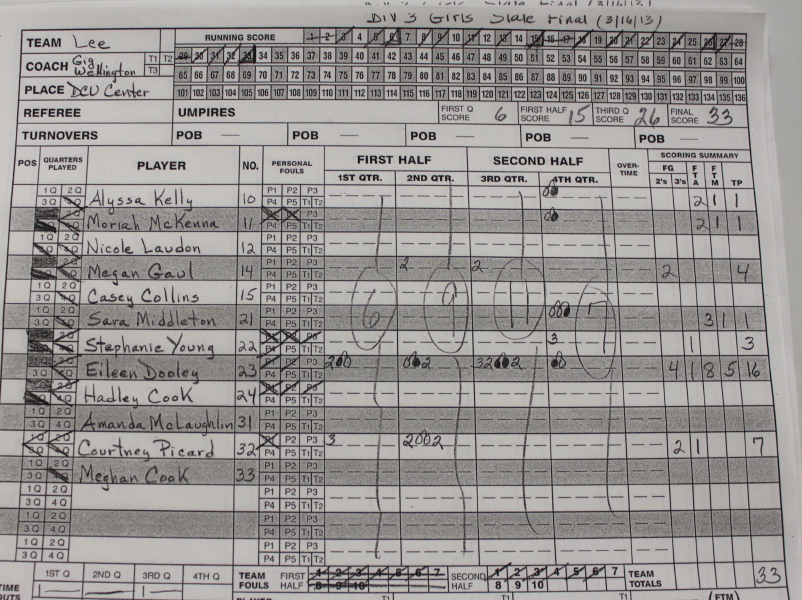 DIV 3 Girls State Final (3/16/13)
TEAM Lee RUNNING SCORE 1 2 3 4 5 6 7 8 9 10 11 12 13 14 15 16 17 18 19 20 21 22 23 24 25 26 27 28
COACH Gig Wellington T1 T2 T3 29 30 31 32 33 34 35 36 37 38 39 40 41 42 43 44 45 46 47 48 49 50 51 52 53 54 55 56 57 58 59 60 61 62 63 64
65 66 67 68 69 70 71 72 73 74 75 76 77 78 79 80 81 82 83 84 85 86 87 88 89 90 91 92 93 94 95 96 97 98 99 100
PLACE DCU Center 101 102 103 104 105 106 107 108 109 110 111 112 113 114 115 116 117 118 119 120 121 122 123 124 125 126 127 128 129 130 131 132 133 134 135 136
REFEREE UMPIRES FIRST Q SCORE 6 FIRST HALF SCORE 15 THIRD Q SCORE 26 FINAL SCORE 33
TURNOVERS POB — POB — POB — POB —
POS QUARTERS PLAYED PLAYER NO. PERSONAL FOULS FIRST HALF SECOND HALF OVER-TIME SCORING SUMMARY
1ST QTR. 2ND QTR. 3RD QTR. 4TH QTR. FG 2's 3's FTA FTM TP
Alyssa Kelly 10 P1 P2 P3 P4 P5 T1 T2 2 1 1
Moriah McKenna 11 P3 P4 P5 T1 T2 2 1 1
Nicole Laudon 12 P1 P2 P3 P4 P5 T1 T2
Megan Gaul 14 P1 P2 P3 P4 P5 T1 T2 2 2 2 4
Casey Collins 15 P1 P2 P3 P4 P5 T1 T2
Sara Middleton 21 P1 P2 P3 P4 P5 T1 T2 3 1 1
Stephanie Young 22 P5 T1 T2 3 1 3
Eileen Dooley 23 P3 P4 P5 T1 T2 4 1 8 5 16
Hadley Cook 24 P4 P5 T1 T2
Amanda McLaughlin 31 P1 P2 P3 P4 P5 T1 T2
Courtney Picard 32 P2 P3 P4 P5 T1 T2 3 2002 2 1 7
Meghan Cook 33 P1 P2 P3 P4 P5 T1 T2
6 9 11 7
1Q 2Q P1 P2 P3
3Q 4Q P4 P5 T1 T2
1Q 2Q P1 P2 P3
3Q 4Q P4 P5 T1 T2
1Q 2Q P1 P2 P3
3Q 4Q P4 P5 T1 T2
1ST Q 2ND Q 3RD Q 4TH Q TEAM FOULS FIRST HALF 1 2 3 4 5 6 7 8 9 10 SECOND HALF 1 2 3 4 5 6 7 8 9 10 TEAM TOTALS 33
(FTM)